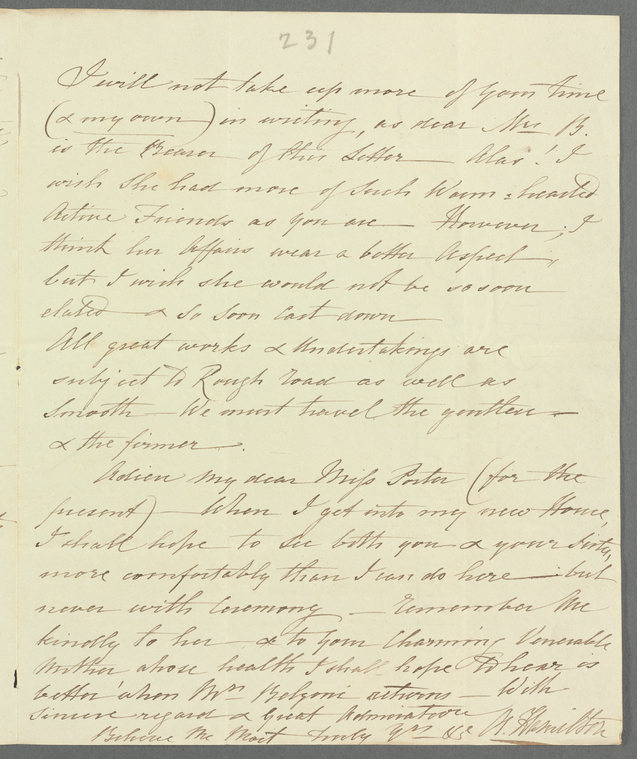 231
I will not take up more of your time
(& my own) in writing, as dear Mrs B.
is the Bearer of this Letter — Alas! I
wish She had more of Such Warm=hearted
Active Friends as you are — However, I
think her Affairs wear a better Aspect,
but I wish she would not be so soon
elated & So Soon Cast down —
All great works & Undertakings are
subject to Rough road as well as
Smooth — We must travel the
& the former.
Adieu my dear Miss Porter (for the
present) — When I get into my new House,
I shall hope to see both you & your Sister,
more comfortably than I can do here — but
never with Ceremony — Remember Me
kindly to her & to your Charming Venerable
Mother whose health I shall hope to hear is
better when Mrs Belzoni returns — With
Sincere regard & Great Admiration
Believe Me Most truly Yrs &c Hamilton